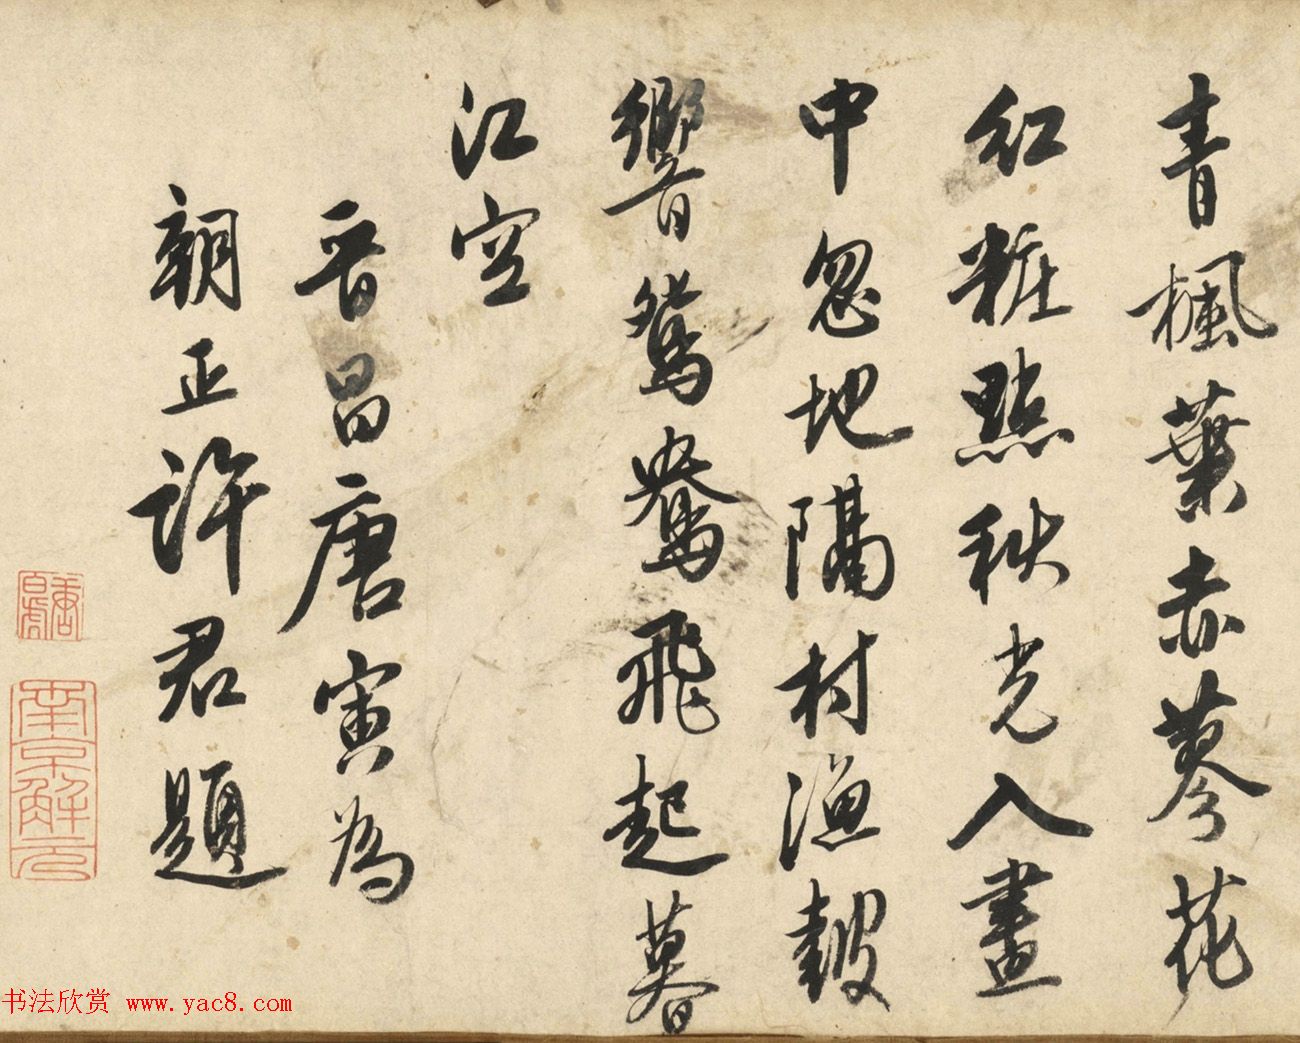 青楓葉赤蓼花
紅粧點秋光入畫
中忽地隔村漁鼓
響鴛鴦飛起暮
江空
晉昌唐寅為
朝正許君題
唐白虎
南京解元
书法欣赏 www.yac8.com